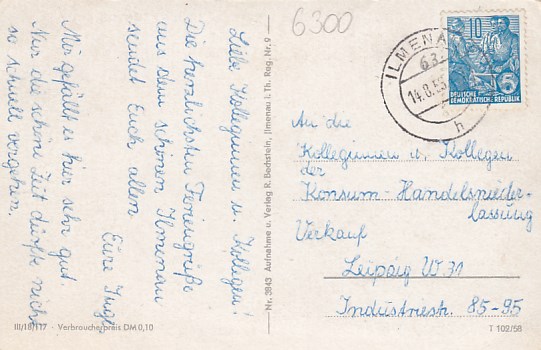 6300
Liebe Kolleginnen u. Kollegen!
Die herzlichsten Feriengrüße
aus dem schönen Ilmenau
sendet Euch allen
Eure Inge
Mir gefällt es hier sehr gut.
Nur die schöne Zeit dürfte nicht
so schnell vergehen.
III/18/177 · Verbraucherpreis DM 0,10
Nr. 3843 Aufnahme u. Verlag R. Bechstein, Ilmenau i. Th. Reg. Nr. 9
ILMENAU
14.8.
h
10
5
DEUTSCHE
DEMOKRATISCHE REPUBLIK
An die
Kolleginnen u. Kollegen
der
Konsum-Handelsnieder-
lassung
Verkauf
Leipzig W. 31
Industriestr. 85-95
T 102/58